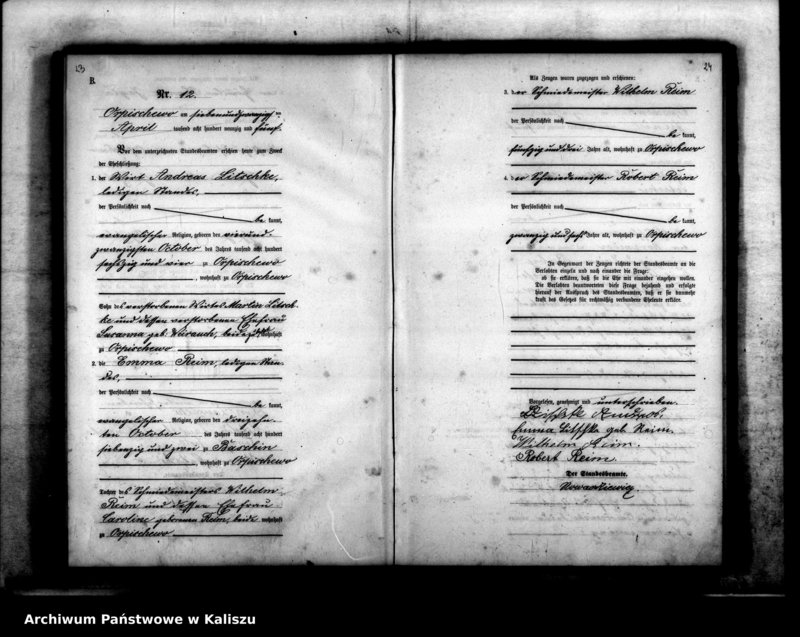 23
B.
Nr. 12.
Orpischewo am siebenundzwanzigsten
April tausend acht hundert neunzig und fünf.
Vor dem unterzeichneten Standesbeamten erschien heute zum Zweck
der Eheschließung:
1. der Wirt Andreas Litschke,
ledigen Standes,
der Persönlichkeit nach
be kannt,
evangelischer Religion, geboren den vierund
zwanzigsten October des Jahres tausend acht hundert
sechszig und vier zu Orpischewo
, wohnhaft zu Orpischewo
Sohn des verstorbenen Wirtes Martin Litsch-
ke und dessen verstorbenen Ehefrau
Susanna geb. beide wohnhaft
zu Orpischewo
2. die Emma Reim, ledigen Stan-
des,
der Persönlichkeit nach
be kannt,
evangelischer Religion, geboren den dreizehn
ten October des Jahres tausend acht hundert
siebenzig und zwei zu Baschin
, wohnhaft zu Orpischewo
Tochter des Schmiedemeisters Wilhelm
Reim und dessen Ehefrau
Caroline geborenen Reim, beide wohnhaft
zu Orpischewo
24
Als Zeugen waren zugezogen und erschienen:
3. der Schmiedemeister Wilhelm Reim
der Persönlichkeit nach
be kannt,
fünfzig und drei Jahre alt, wohnhaft zu Orpischewo
4. der Schmiedemeister Robert Reim
der Persönlichkeit nach
be kannt,
zwanzig und sechs Jahre alt, wohnhaft zu Orpischewo
In Gegenwart der Zeugen richtete der Standesbeamte an die
Verlobten einzeln und nach einander die Frage:
ob sie erklären, daß sie die Ehe mit einander eingehen wollen.
Die Verlobten beantworteten diese Frage bejahend und erfolgte
hierauf der Ausspruch des Standesbeamten, daß er sie nunmehr
kraft des Gesetzes für rechtmäßig verbundene Eheleute erkläre.
Vorgelesen, genehmigt und unterschrieben.
Emma Litschke geb. Reim.
Wilhelm Reim.
Robert Reim.
Der Standesbeamte.
Nowankiewicz.
Archiwum Państwowe w Kaliszu